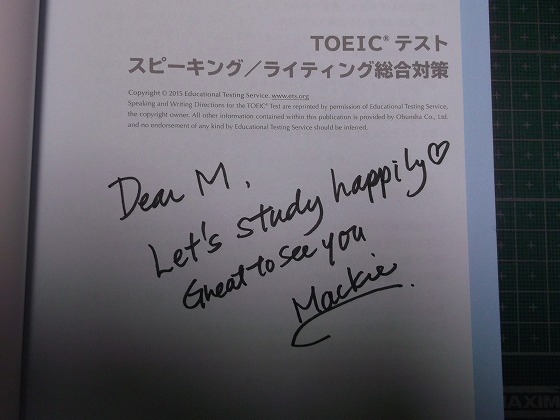 TOEIC® テスト
スピーキング／ライティング総合対策
Copyright © 2015 Educational Testing Service. www.ets.org
Speaking and Writing Directions for the TOEIC® Test are reprinted by permission of Educational Testing Service,
the copyright owner. All other information contained within this publication is provided by Obunsha Co., Ltd.
and no endorsement of any kind by Educational Testing Service should be inferred.
Dear M.
Let's study happily♡
Great to see you
Mackie
MAXIM